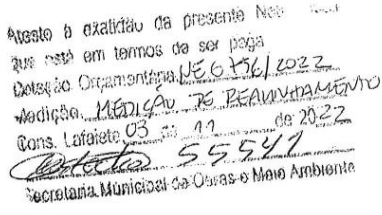 Atesto a exatidão da presente
que está em termos de ser paga
Dotação Orçamentária NE 6756/2022
Medição MEDIÇÃO DE REALINHAMENTO
Cons. Lafaiete 03 de 11 de 2022
55541
Secretaria Municipal de Obras e Meio Ambiente